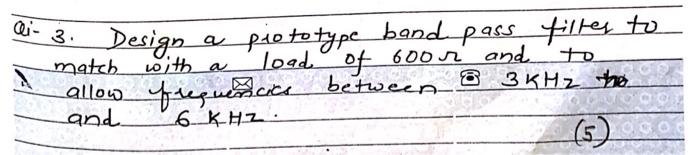 Qi- 3. Design a prototype band pass filter to
match with a load of 600 Ω and to
allow frequencies between 3 KHz
and 6 KHZ.
(5)